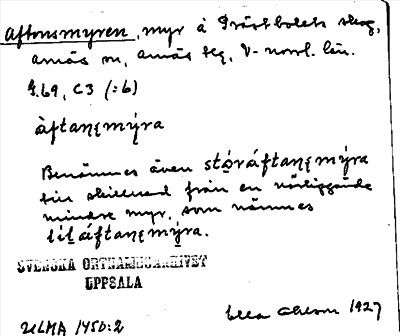 Aftonsmyren, myr å Prästbolets skog,
Amäs sn, Amäs tg, V-norrl. län.
g.69, C3 (:b)
àftanęmýra
Benämnes även stǫ́ráftanęmýra
till skillnad från en närliggande
mindre myr, som nämnes
líláftanęmýra.
SVENSKA ORTNAMNSARKIVET
UPPSALA
ULMA 1450:2
Ella Ohlson 1927